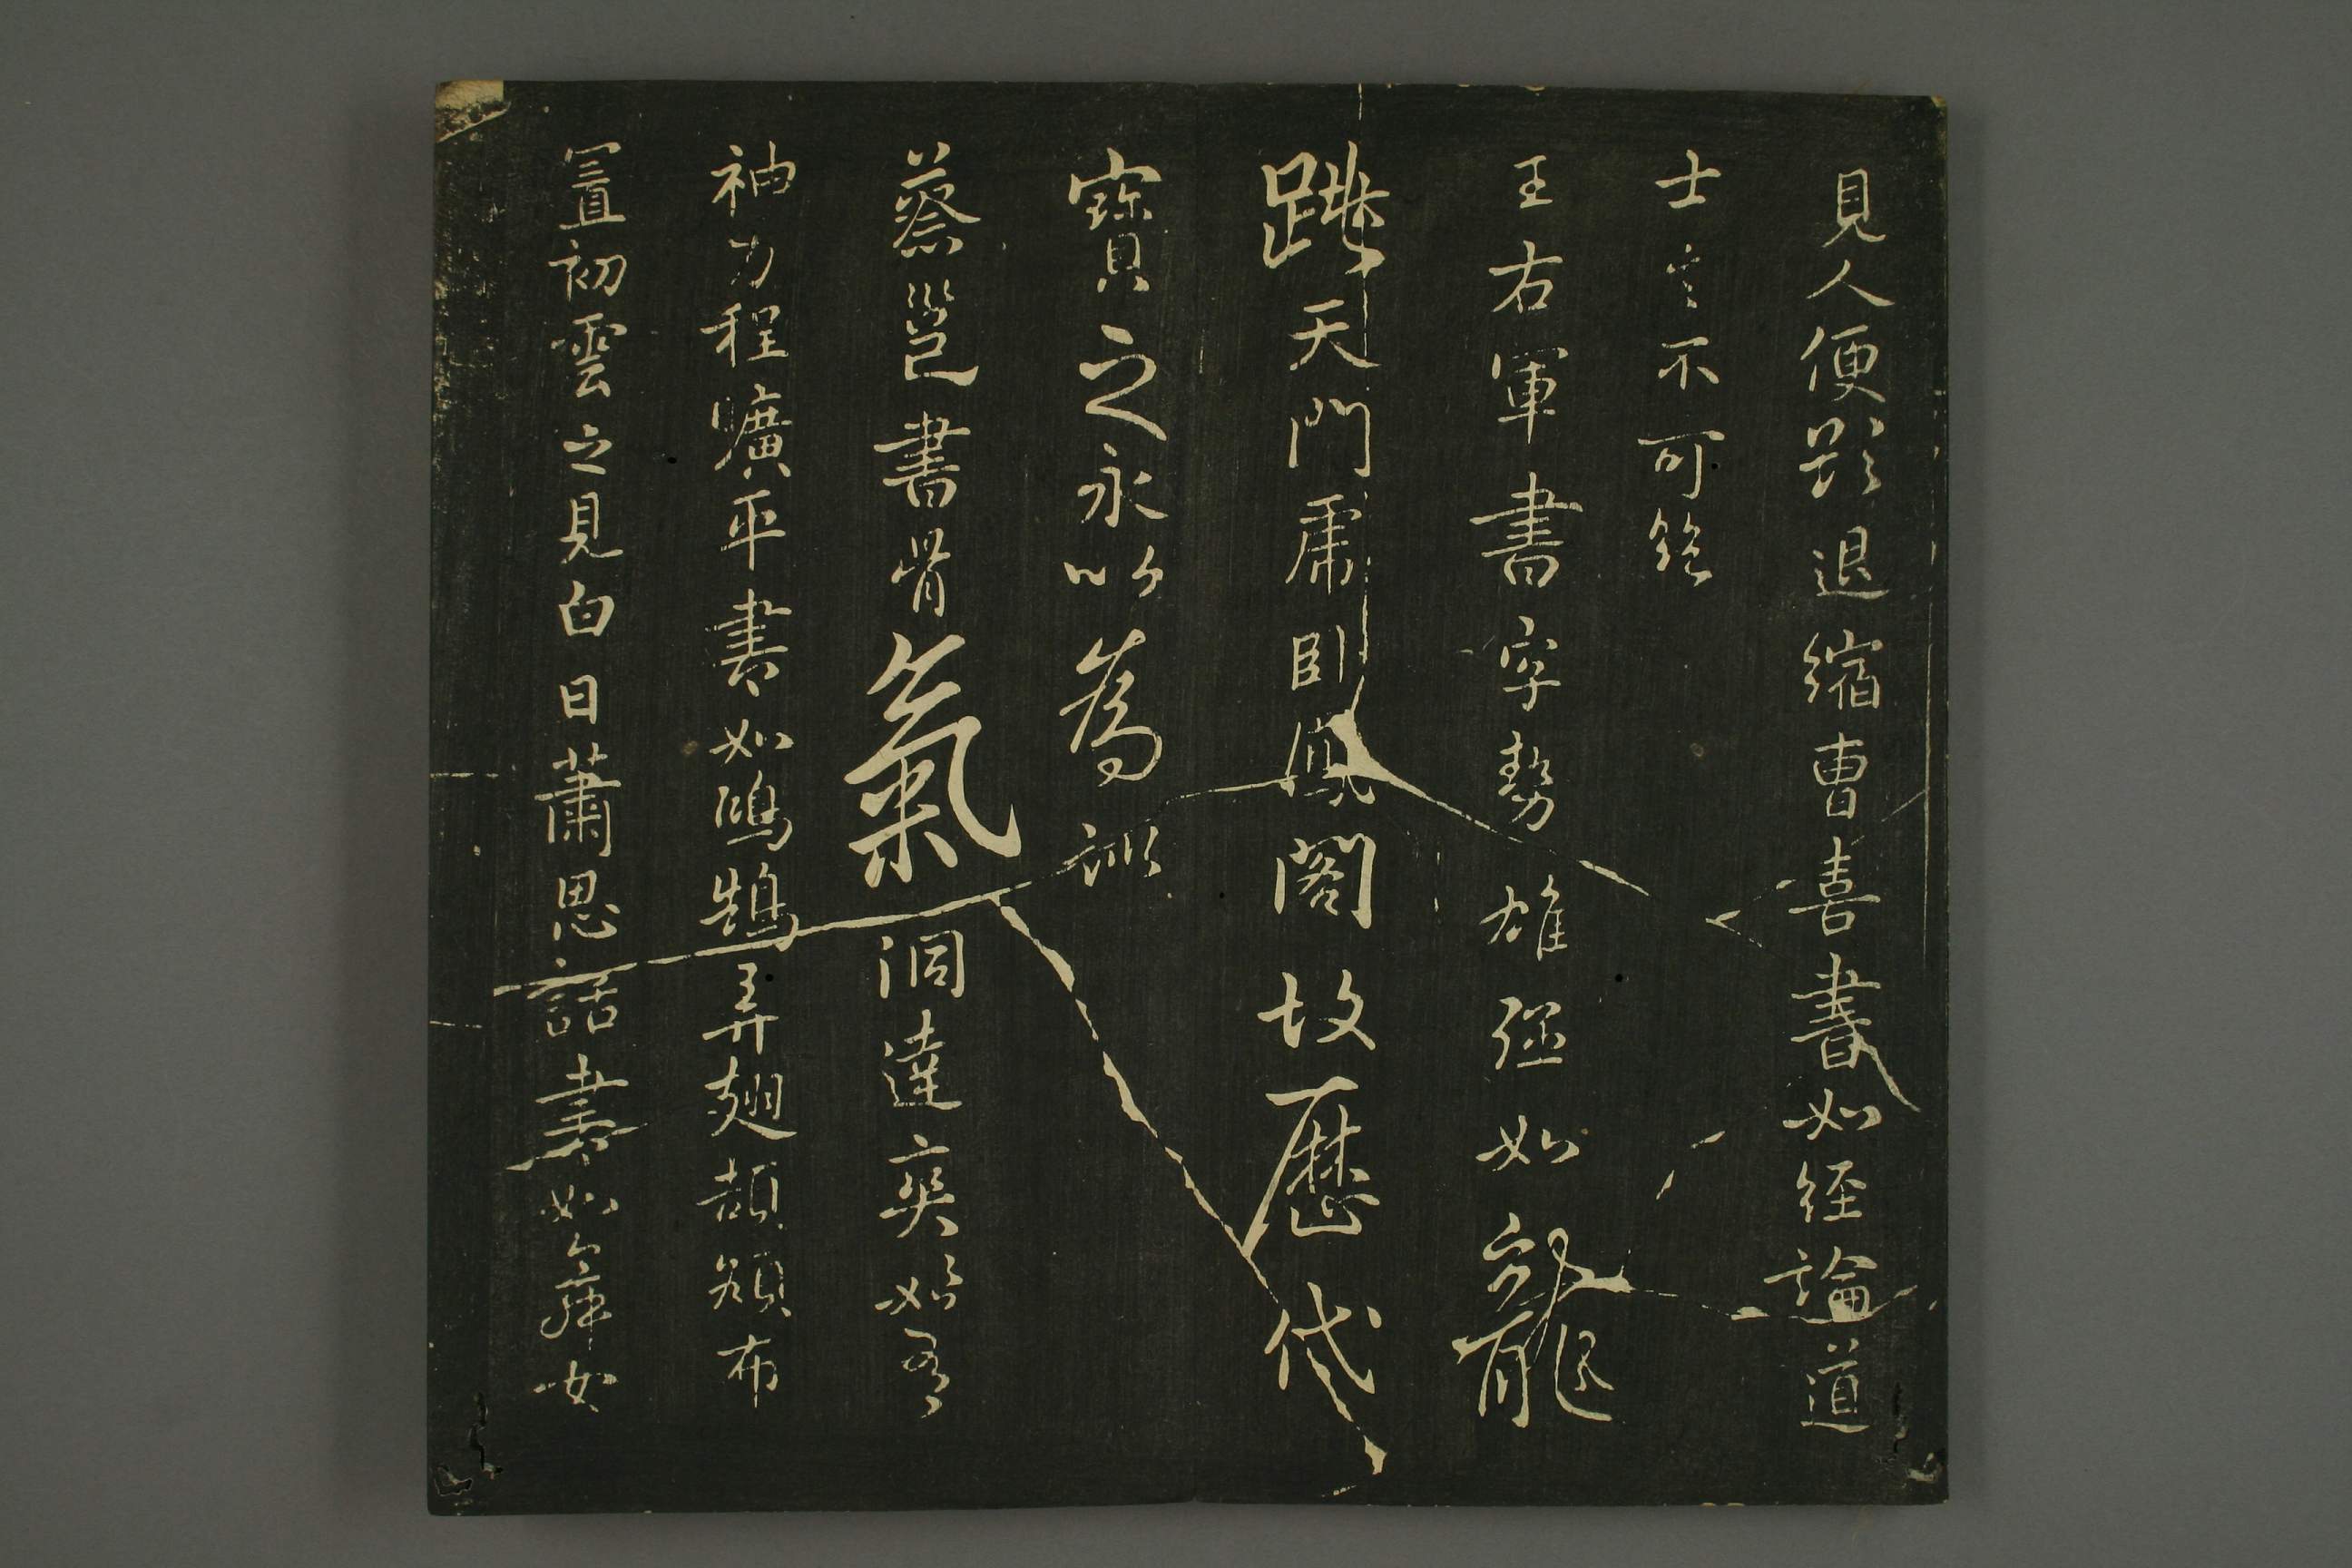 見人便欲退縮曹喜書如經論道
士言不可絶
王右軍書字勢雄强如龍
跳天門虎卧鳳閣故歷代
寳之永以為訓
蔡邕書骨氣洞達爽如有
神力程曠平書如鴻鵠弄翅頡頏布
置初雲之見白日蕭思話書如舞女